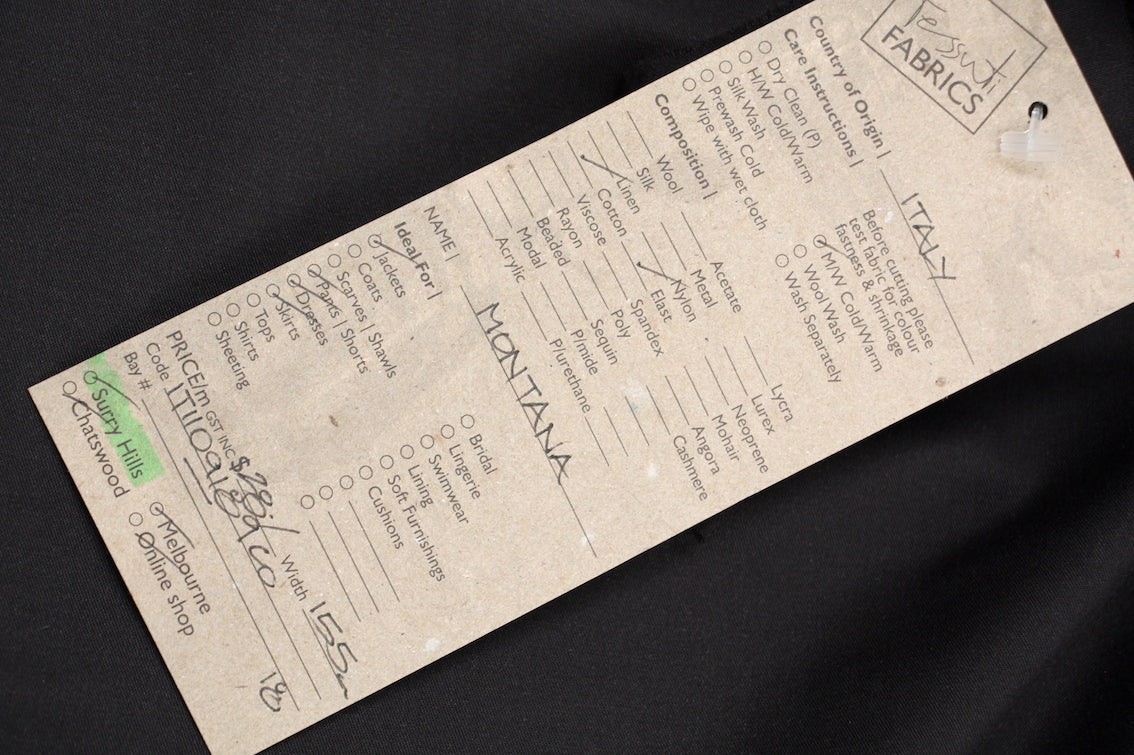 Tessuti
FABRICS
Country of Origin | ITALY
Care Instructions |
Before cutting please
test fabric for colour
fastness & shrinkage
Dry Clean (P)
H/W Cold/Warm
Silk Wash
Prewash Cold
Wipe with wet cloth
M/W Cold/Warm
Wool Wash
Wash Separately
Composition |
Wool
Silk
Linen
Cotton
Viscose
Rayon
Beaded
Modal
Acrylic
Acetate
Metal
Nylon
Elast
Spandex
Poly
Sequin
P/mide
P/urethane
Lycra
Lurex
Neoprene
Mohair
Angora
Cashmere
NAME | MONTANA
Ideal For |
Jackets
Coats
Scarves | Shawls
Pants | Shorts
Dresses
Skirts
Tops
Shirts
Sheeting
Bridal
Lingerie
Swimwear
Lining
Soft Furnishings
Cushions
PRICE/m GST INC Width 155
Code
Bay # 18
Surry Hills
Chatswood
Melbourne
Online shop